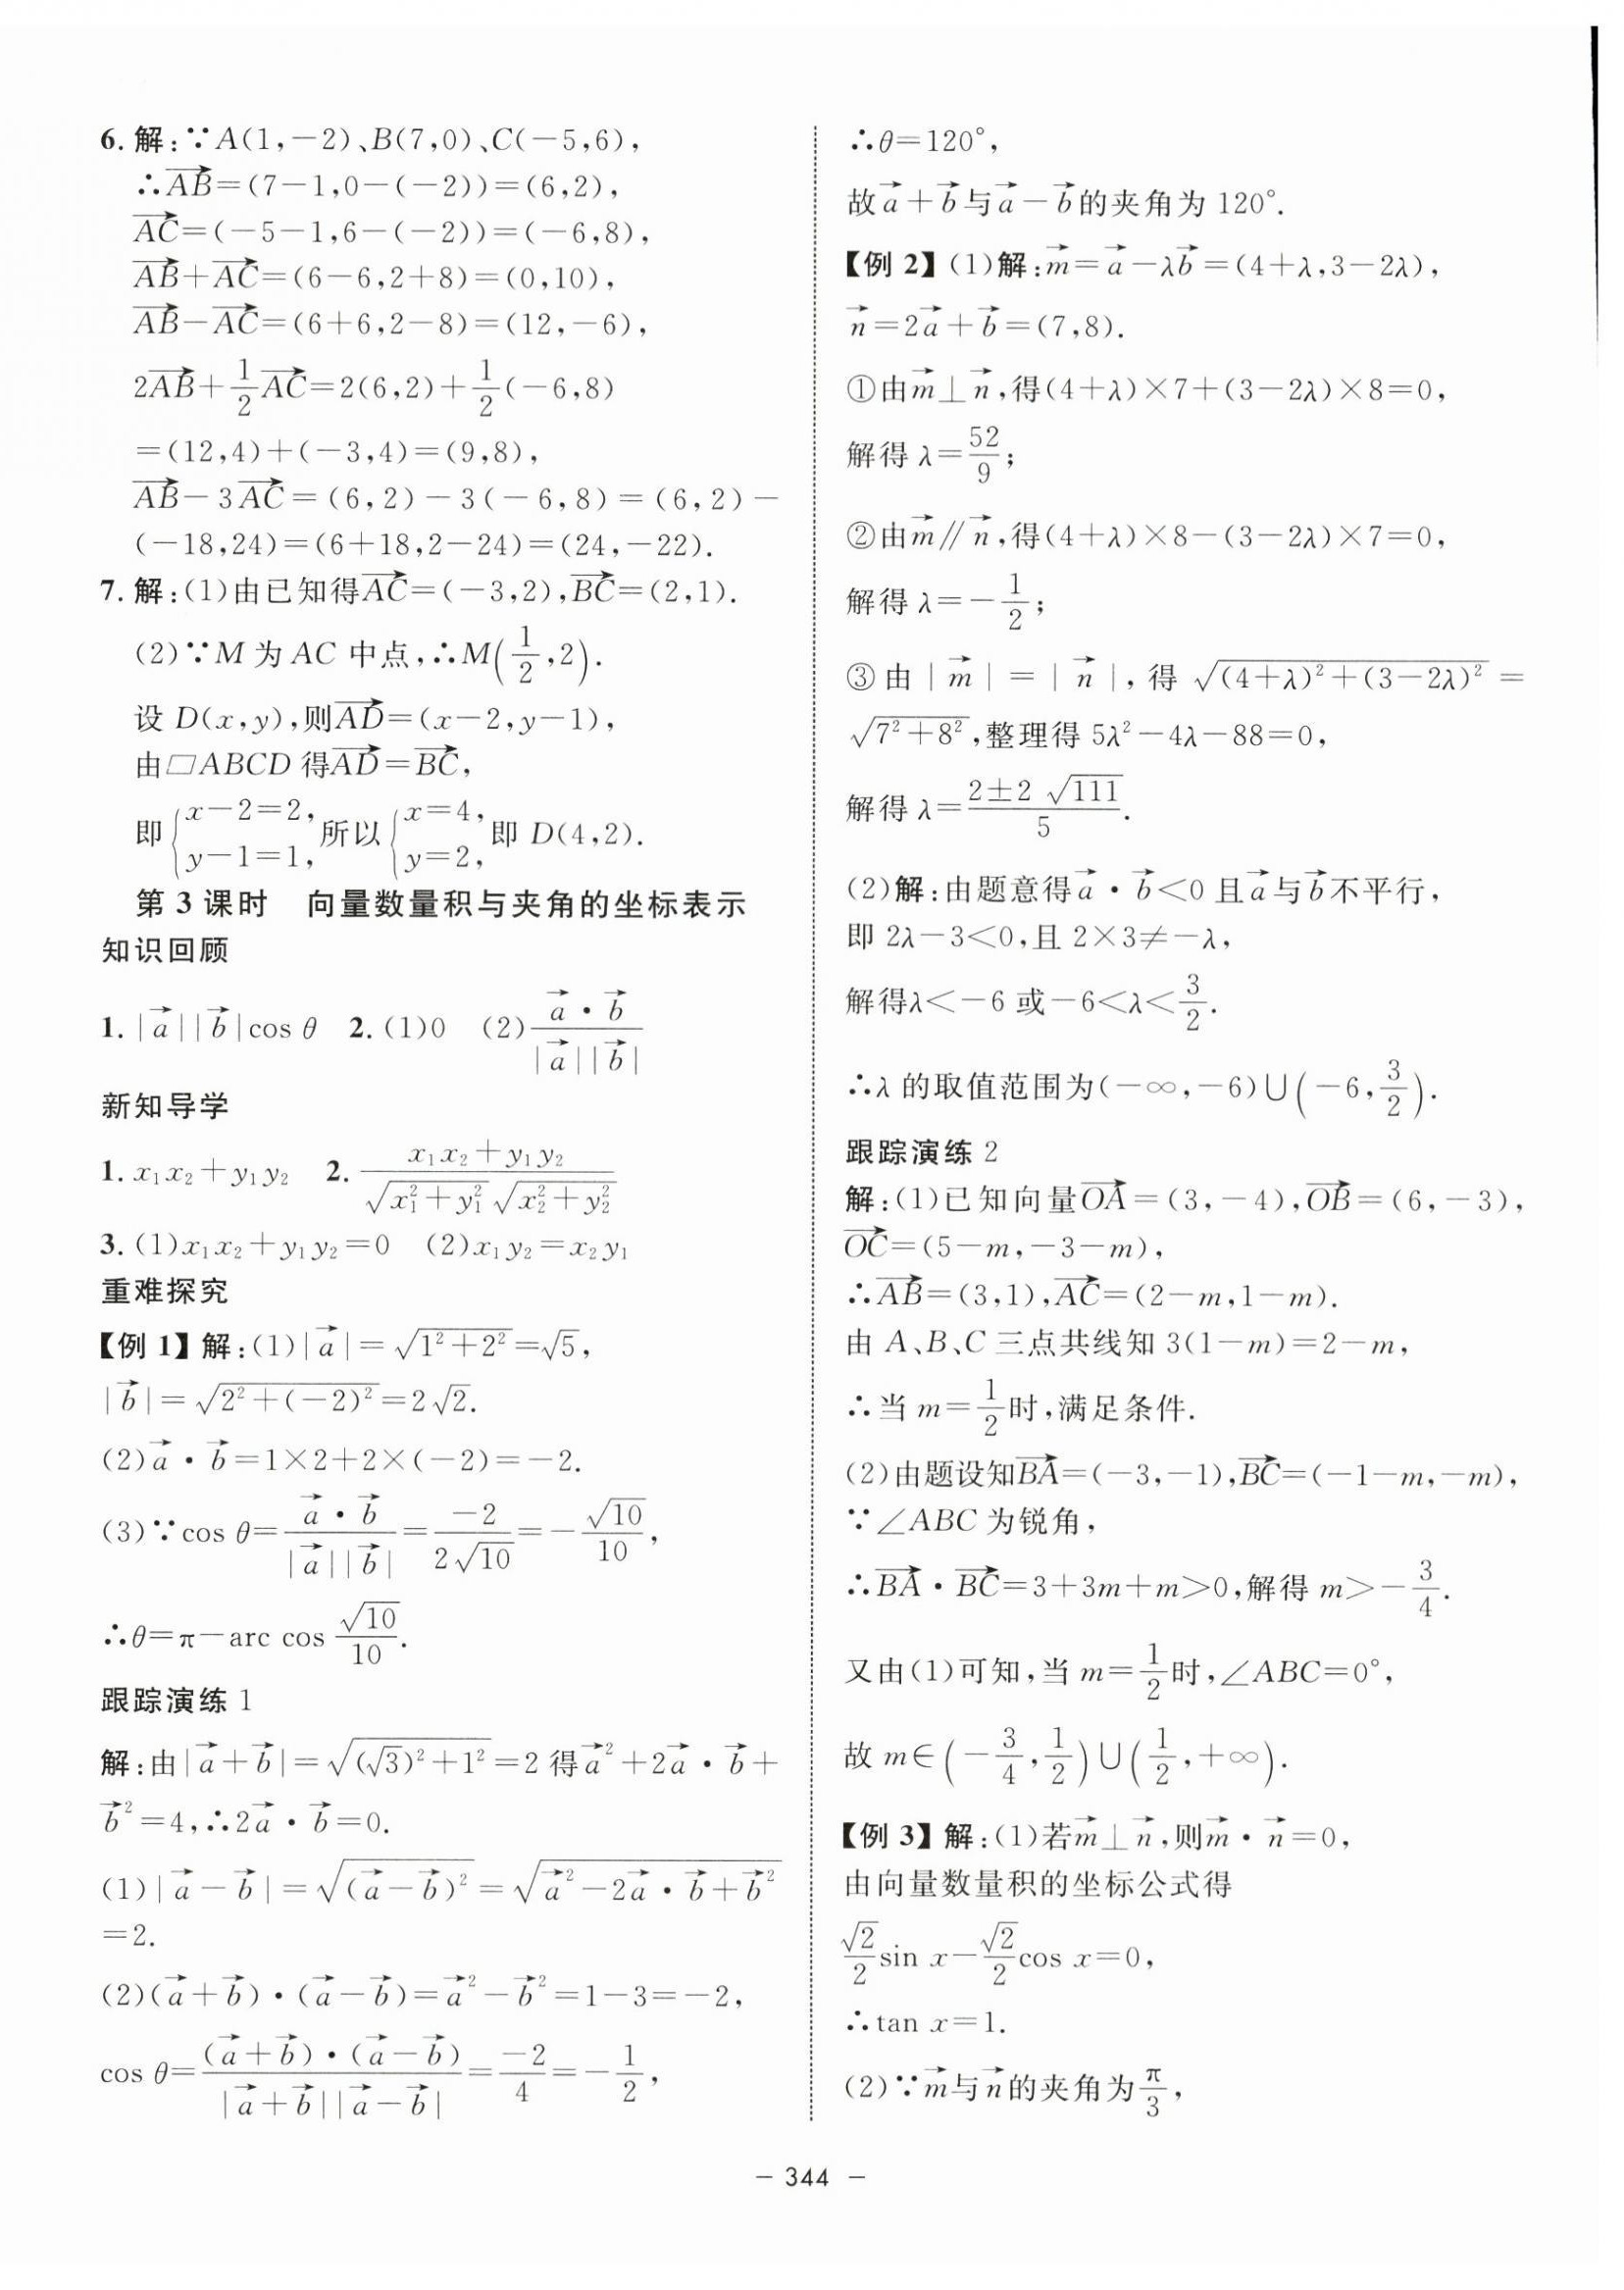 6. 解:∵A(1,−2)、B(7,0)、C(−5,6),
∴$\overrightarrow{AB}$=(7−1,0−(−2))=(6,2),
$\overrightarrow{AC}$=(−5−1,6−(−2))=(−6,8),
$\overrightarrow{AB}+\overrightarrow{AC}$=(6−6,2+8)=(0,10),
$\overrightarrow{AB}-\overrightarrow{AC}$=(6+6,2−8)=(12,−6),
$2\overrightarrow{AB}+\frac{1}{2}\overrightarrow{AC}=2(6,2)+\frac{1}{2}(-6,8)$
=(12,4)+(−3,4)=(9,8),
$\overrightarrow{AB}-3\overrightarrow{AC}$=(6,2)−3(−6,8)=(6,2)−
(−18,24)=(6+18,2−24)=(24,−22).
7. 解:(1)由已知得$\overrightarrow{AC}$=(−3,2),$\overrightarrow{BC}$=(2,1).
(2)∵M 为 AC 中点,∴$M\left(\frac{1}{2},2\right)$.
设 D(x,y),则$\overrightarrow{AD}$=(x−2,y−1),
由▱ABCD 得$\overrightarrow{AD}=\overrightarrow{BC}$,
即$\begin{cases}x-2=2,\\y-1=1,\end{cases}$所以$\begin{cases}x=4,\\y=2,\end{cases}$即 D(4,2).
第 3 课时 向量数量积与夹角的坐标表示
知识回顾
1. $|\vec{a}||\vec{b}|\cos\theta$ 2. (1)0 (2)$\frac{\vec{a}\cdot\vec{b}}{|\vec{a}||\vec{b}|}$
新知导学
1. $x_1x_2+y_1y_2$ 2. $\frac{x_1x_2+y_1y_2}{\sqrt{x_1^2+y_1^2}\sqrt{x_2^2+y_2^2}}$
3. (1)$x_1x_2+y_1y_2=0$ (2)$x_1y_2=x_2y_1$
重难探究
【例 1】解:(1)$|\vec{a}|=\sqrt{1^2+2^2}=\sqrt{5}$,
$|\vec{b}|=\sqrt{2^2+(-2)^2}=2\sqrt{2}$.
(2)$\vec{a}\cdot\vec{b}$=1×2+2×(−2)=−2.
(3)∵$\cos\theta=\frac{\vec{a}\cdot\vec{b}}{|\vec{a}||\vec{b}|}=\frac{-2}{2\sqrt{10}}=-\frac{\sqrt{10}}{10}$,
∴θ=π−arc cos $\frac{\sqrt{10}}{10}$.
跟踪演练 1
解:由$|\vec{a}+\vec{b}|=\sqrt{(\sqrt{3})^2+1^2}=2$ 得$\vec{a}^2+2\vec{a}\cdot\vec{b}+$
$\vec{b}^2=4$,∴$2\vec{a}\cdot\vec{b}=0$.
(1)$|\vec{a}-\vec{b}|=\sqrt{(\vec{a}-\vec{b})^2}=\sqrt{\vec{a}^2-2\vec{a}\cdot\vec{b}+\vec{b}^2}$
=2.
(2)$(\vec{a}+\vec{b})\cdot(\vec{a}-\vec{b})=\vec{a}^2-\vec{b}^2=1-3=-2$,
$\cos\theta=\frac{(\vec{a}+\vec{b})\cdot(\vec{a}-\vec{b})}{|\vec{a}+\vec{b}||\vec{a}-\vec{b}|}=\frac{-2}{4}=-\frac{1}{2}$,
∴θ=120°,
故$\vec{a}+\vec{b}$与$\vec{a}-\vec{b}$的夹角为 120°.
【例 2】(1)解:$\vec{m}=\vec{a}-\lambda\vec{b}$=(4+λ,3−2λ),
$\vec{n}=2\vec{a}+\vec{b}$=(7,8).
①由$\vec{m}\perp\vec{n}$,得(4+λ)×7+(3−2λ)×8=0,
解得 $\lambda=\frac{52}{9}$;
②由$\vec{m}∥\vec{n}$,得(4+λ)×8−(3−2λ)×7=0,
解得 $\lambda=-\frac{1}{2}$;
③由$|\vec{m}|=|\vec{n}|$,得 $\sqrt{(4+\lambda)^2+(3-2\lambda)^2}=$
$\sqrt{7^2+8^2}$,整理得 $5\lambda^2-4\lambda-88=0$,
解得 $\lambda=\frac{2\pm2\sqrt{111}}{5}$.
(2)解:由题意得$\vec{a}\cdot\vec{b}<0$ 且$\vec{a}$与$\vec{b}$不平行,
即 2λ−3<0,且 2×3≠−λ,
解得λ<−6 或−6<λ<$\frac{3}{2}$.
∴λ 的取值范围为$(-\infty,-6)\cup\left(-6,\frac{3}{2}\right)$.
跟踪演练 2
解:(1)已知向量$\overrightarrow{OA}$=(3,−4),$\overrightarrow{OB}$=(6,−3),
$\overrightarrow{OC}$=(5−m,−3−m),
∴$\overrightarrow{AB}$=(3,1),$\overrightarrow{AC}$=(2−m,1−m).
由 A、B、C 三点共线知 3(1−m)=2−m,
∴当 $m=\frac{1}{2}$时,满足条件.
(2)由题设知$\overrightarrow{BA}$=(−3,−1),$\overrightarrow{BC}$=(−1−m,−m),
∵∠ABC 为锐角,
∴$\overrightarrow{BA}\cdot\overrightarrow{BC}$=3+3m+m>0,解得 $m>-\frac{3}{4}$.
又由(1)可知,当 $m=\frac{1}{2}$时,∠ABC=0°,
故 $m\in\left(-\frac{3}{4},\frac{1}{2}\right)\cup\left(\frac{1}{2},+\infty\right)$.
【例 3】解:(1)若$\vec{m}\perp\vec{n}$,则$\vec{m}\cdot\vec{n}=0$,
由向量数量积的坐标公式得
$\frac{\sqrt{2}}{2}\sin x-\frac{\sqrt{2}}{2}\cos x=0$,
∴tan x=1.
(2)∵$\vec{m}$与$\vec{n}$的夹角为$\frac{\pi}{3}$,
– 344 –